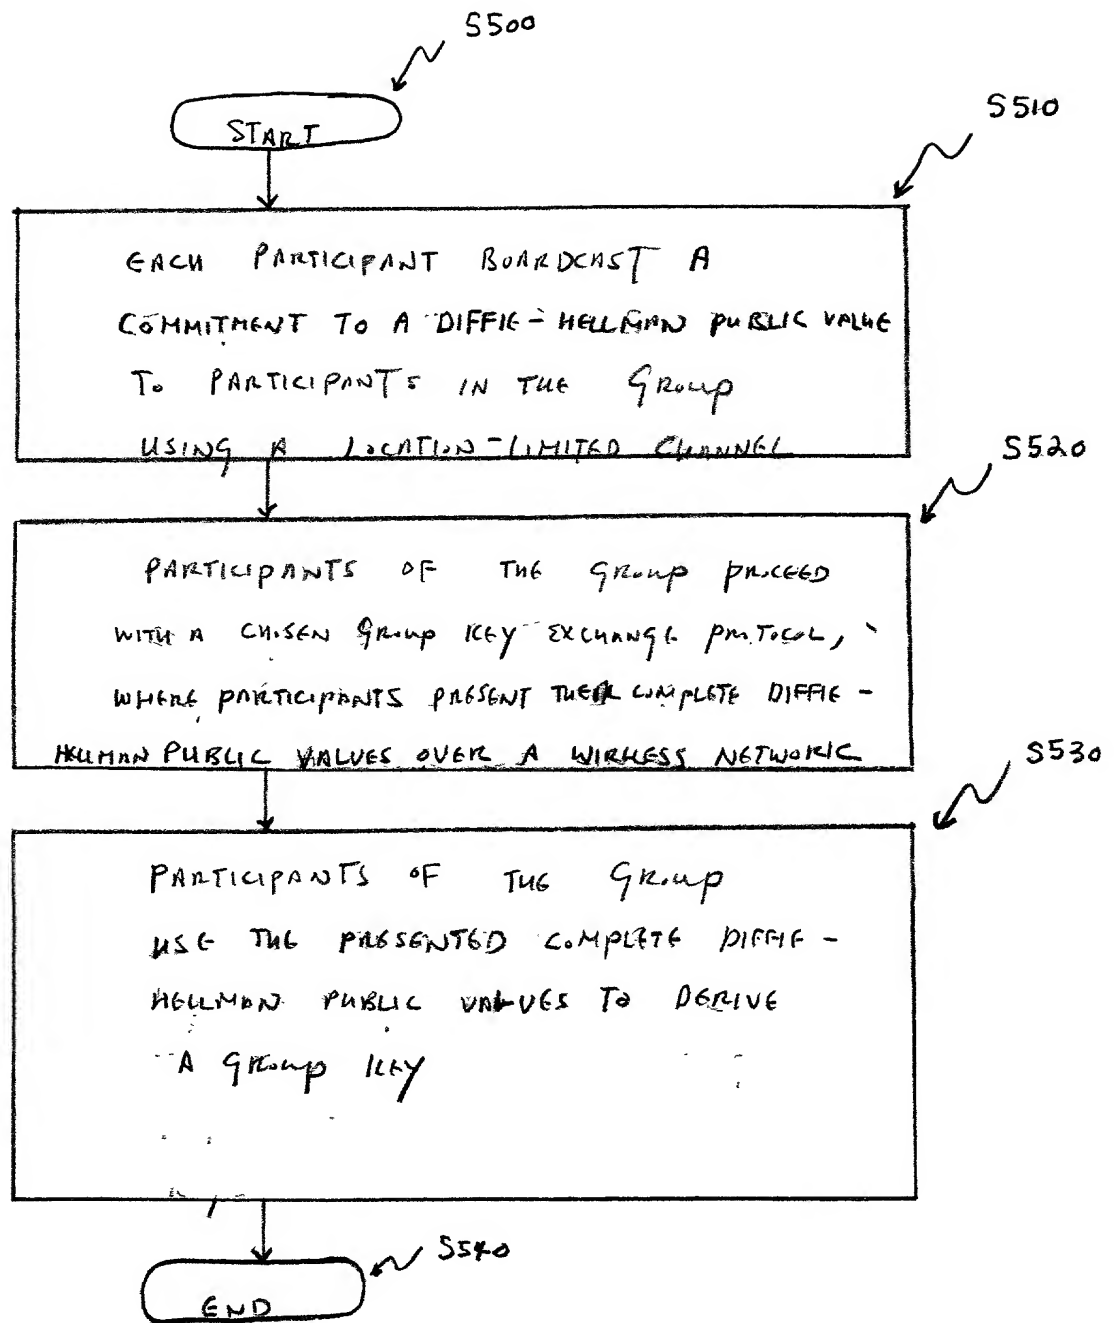 S500
START
S510
EACH PARTICIPANT BOARDCAST A
COMMITMENT TO A DIFFIE-HELLMAN PUBLIC VALUE
TO PARTICIPANTS IN THE GROUP
USING A LOCATION-LIMITED CHANNEL
S520
PARTICIPANTS OF THE GROUP PROCEED
WITH A CHOSEN GROUP KEY EXCHANGE PROTOCOL,
WHERE PARTICIPANTS PRESENT THEIR COMPLETE DIFFIE-
HELLMAN PUBLIC VALUES OVER A WIRELESS NETWORK
S530
PARTICIPANTS OF THE GROUP
USE THE PRESENTED COMPLETE DIFFIE-
HELLMAN PUBLIC VALUES TO DERIVE
A GROUP KEY
S540
END